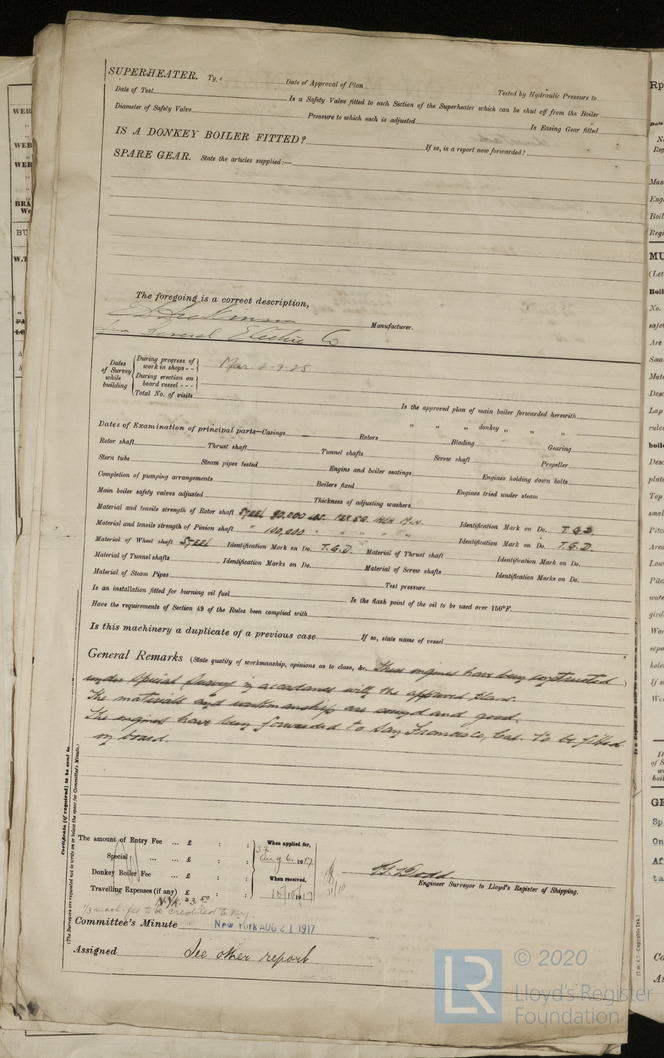 SUPERHEATER. Type Date of Approval of Plan Tested by Hydraulic Pressure to
Date of Test Is a Safety Valve fitted to each Section of the Superheater which can be shut off from the Boiler
Diameter of Safety Valve Pressure to which each is adjusted Is Easing Gear fitted
IS A DONKEY BOILER FITTED? If so, is a report now forwarded?
SPARE GEAR. State the articles supplied:—
The foregoing is a correct description,
General Electric Co Manufacturer.
Dates of Survey while building
During progress of work in shops - - Mar. 2-9-25
During erection on board vessel - - -
Total No. of visits
Is the approved plan of main boiler forwarded herewith
" " " donkey " " "
Dates of Examination of principal parts—Casings Rotors Blading Gearing
Rotor shaft Thrust shaft Tunnel shafts Screw shaft Propeller
Stern tube Steam pipes tested Engine and boiler seatings Engines holding down bolts
Completion of pumping arrangements Boilers fixed Engines tried under steam
Main boiler safety valves adjusted Thickness of adjusting washers
Material and tensile strength of Rotor shaft Steel 80,000 lbs. per sq. inch Identification Mark on Do. T.G.D.
Material and tensile strength of Pinion shaft " 100,000 " " " " Identification Mark on Do. T.G.D.
Material of Wheel shaft Steel Identification Mark on Do. T.G.D. Material of Thrust shaft Identification Mark on Do.
Material of Tunnel shafts Identification Marks on Do. Material of Screw shafts Identification Marks on Do.
Material of Steam Pipes Test pressure
Is an installation fitted for burning oil fuel Is the flash point of the oil to be used over 150°F.
Have the requirements of Section 49 of the Rules been complied with
Is this machinery a duplicate of a previous case If so, state name of vessel
General Remarks (State quality of workmanship, opinions as to class, &c. These engines have been constructed
under special survey in accordance with the approved plans.
The materials and workmanship are sound and good.
The engines have been forwarded to San Francisco, Cal. to be fitted
on board.
Certificate (if required) to be sent to
(The Surveyors are requested not to write on or below the space for Committee's Minute.)
The amount of Entry Fee ... £ : : When applied for,
Special ... ... £ : : Aug 6. 1917
Donkey Boiler Fee ... £ : : When received,
Travelling Expenses (if any) £ : : 15/10/17
Engineer Surveyor to Lloyd's Register of Shipping.
fee to be credited to N.Y.
Committee's Minute New York AUG 21 1917
Assigned See other report
© 2020
LR
Lloyd's Register
Foundation